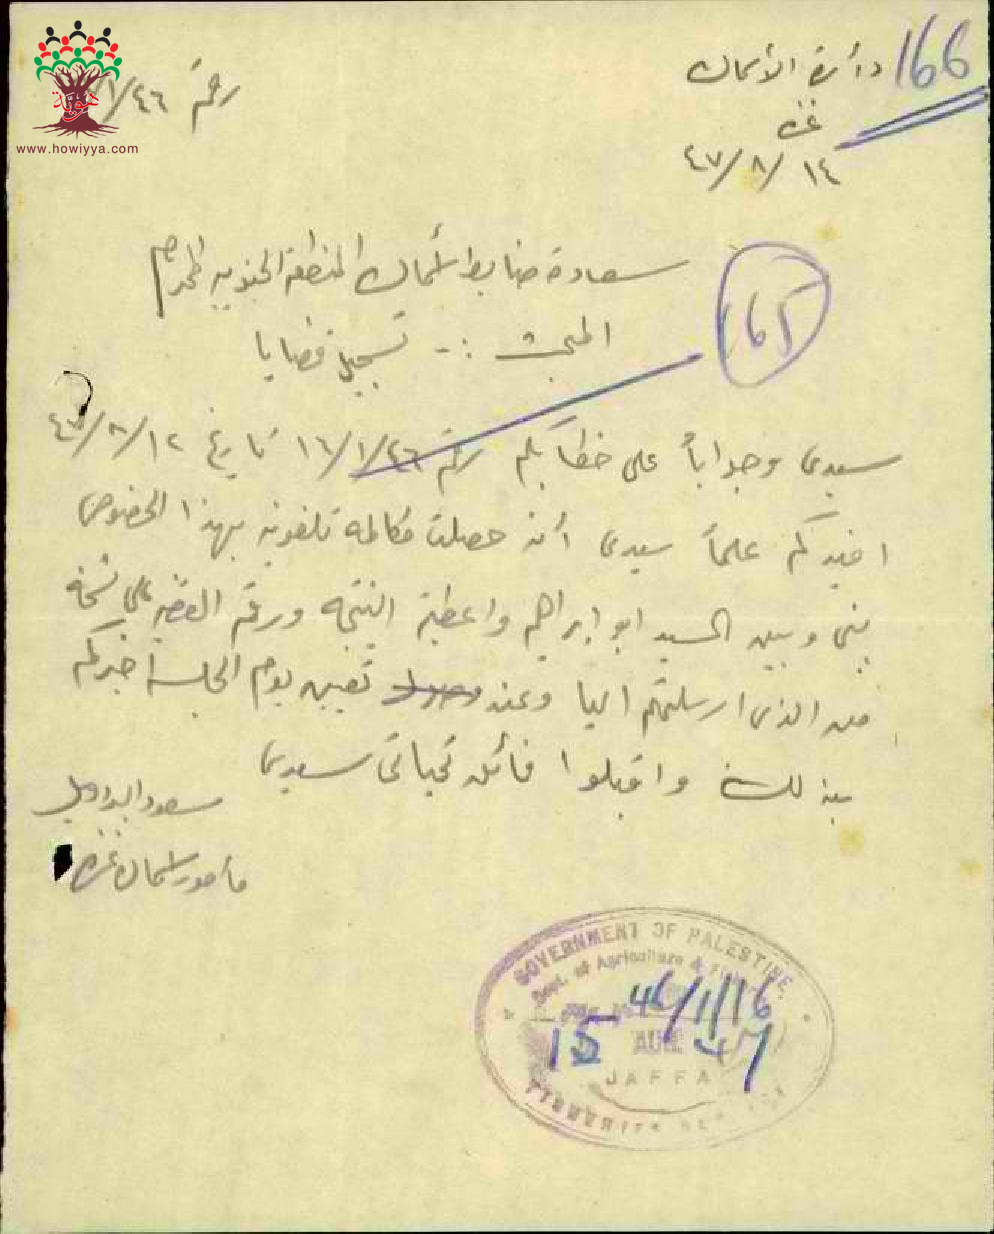 166
دائرة الأسماك
غزة
٤٧/٨/١٤
رقم ١/٤٦
هوية
www.howiyya.com
سعادة ضابط اسماك المنطقة الجنوبيه المحترم
165
المبحث :- تسجيل قضايا
سيدي وجواباً على خطابكم رقم ١٦/١/٤٦ تاريخ ٤٧/٨/١٢
افيدكم علماً سيدي أنه حصلت مكالمه تلفونيه بهذا الخصوص
بيني وبين السيد ابو ابراهيم واعطيته النتيجه ورقم القضيه على نسخة
من الذي ارسلتم الينا وعند تعيين يوم الجلسه اخبركم
بذلك واقبلوا فائق تحياتي سيدي
سعود
مأمور اسماك غزة
GOVERNMENT OF PALESTINE
Dept. of Agriculture &
46/1/16
15 AUG 47
JAFFA
FISHERIES SERVICE